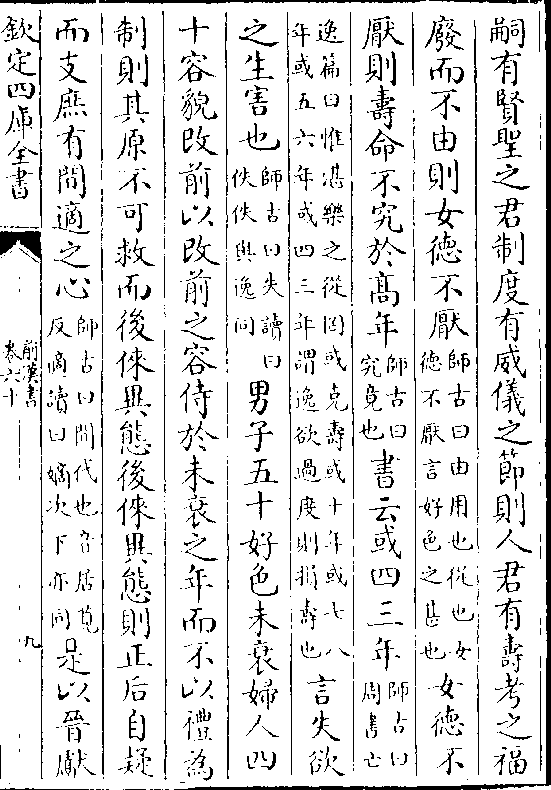 嗣有賢聖之君制度有威儀之節則人君有壽考之福
廢而不由則女德不厭師古曰由用也從也女德不厭言好色之甚也女德不
厭則壽命不究於高年師古曰究竟也書云或四三年師古曰周書亡
逸篇曰惟湛樂之從罔或克壽或十年或七八年或五六年或四三年謂逸欲過度則損壽也言失欲
之生害也師古曰失讀曰佚佚與逸同男子五十好色未衰婦人四
十容貌改前以改前之容侍於未衰之年而不以禮為
制則其原不可救而後倈異態後倈異態則正后自疑
而支庶有間適之心師古曰間代也音居莧反適讀曰嫡次下亦同是以晉獻
欽定四庫全書
前漢書
卷六十
九